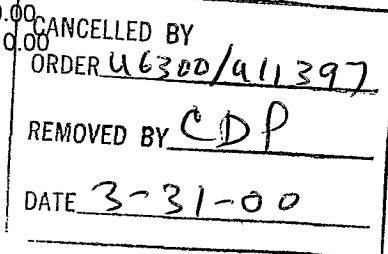 0.00
0.00
CANCELLED BY
ORDER U6300/U11397
REMOVED BY CDP
DATE 3-31-00